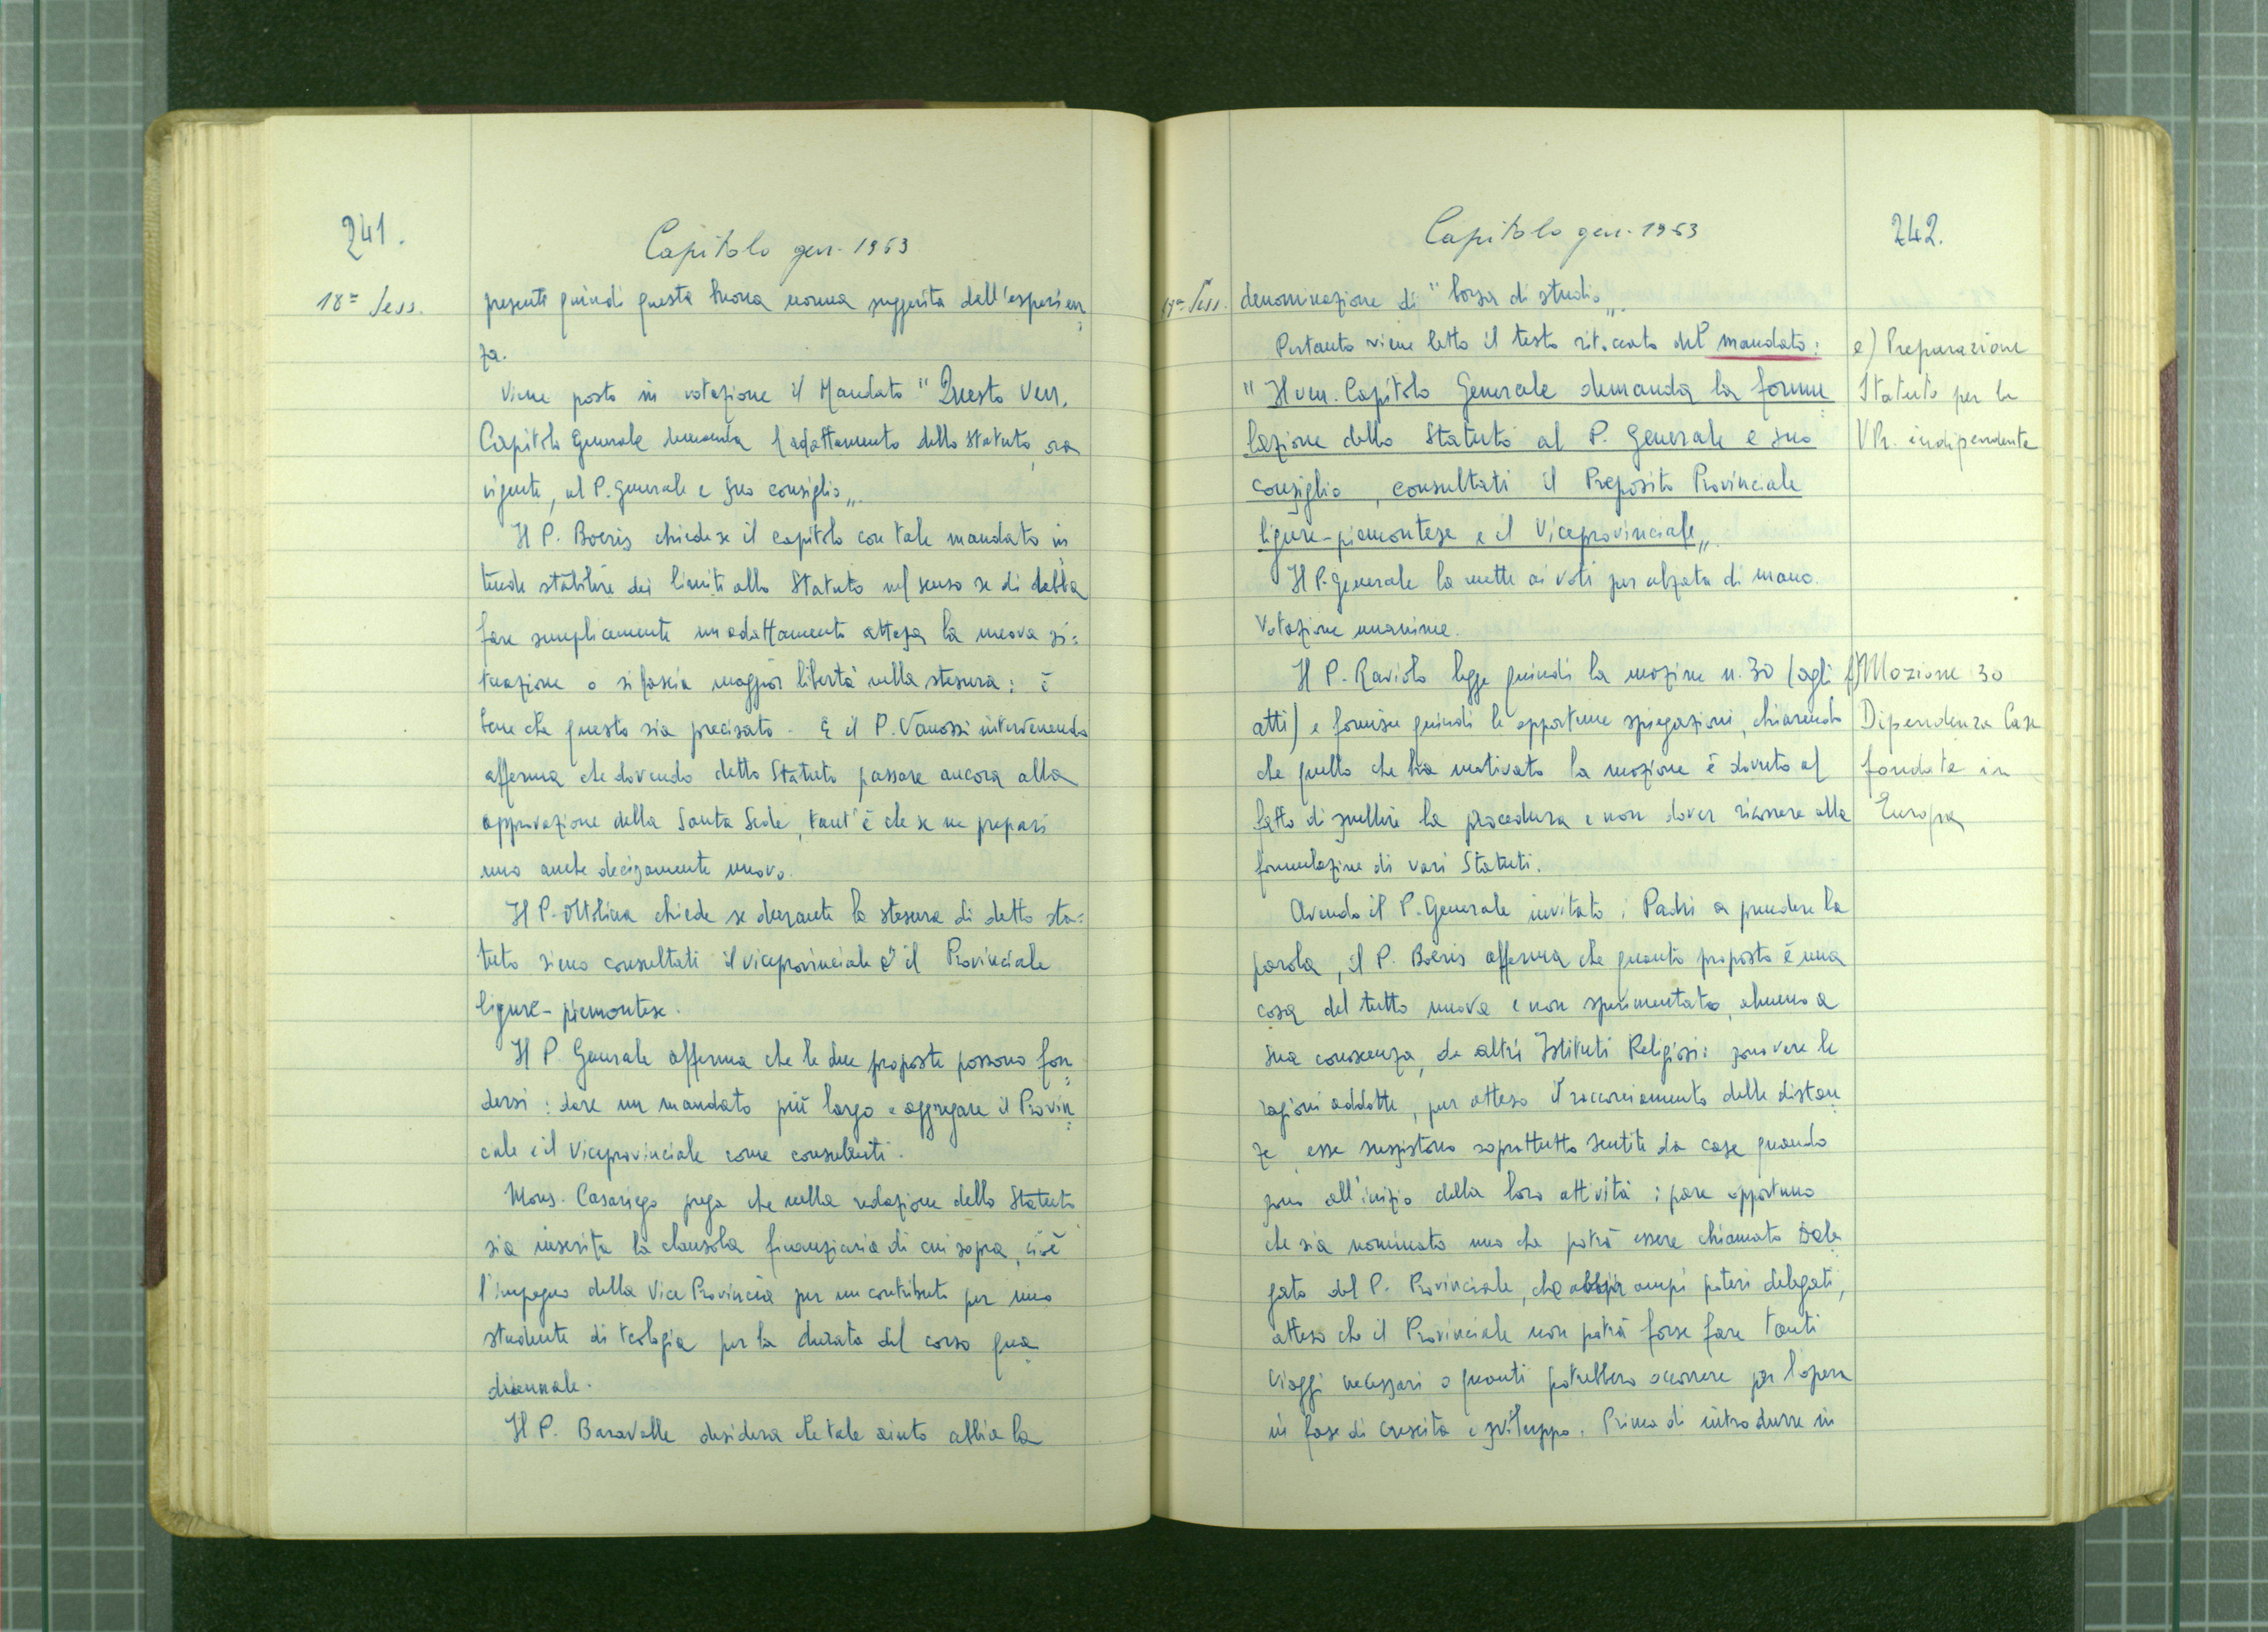 241.
Capitolo gen. 1963
18ª Sess.
presenti quindi questa buona norma suggerita dall'esperien=
za.
Viene posto in votazione il Mandato "Questo Ven.
Capitolo Generale demanda l'adattamento dello statuto, ora
vigente, al P. Generale e suo consiglio„.
Il P. Boeris chiede se il capitolo con tale mandato in=
tende stabilire dei limiti allo Statuto nel senso se di debba
fare semplicemente un adattamento attesa la nuova si=
tuazione o si lascia maggior libertà nella stesura: è
bene che questo sia precisato. E il P. Vanossi intervenendo
afferma che dovendo detto Statuto passare ancora alla
approvazione della Santa Sede, tant'è che se ne prepari
uno anche decisamente nuovo.
Il P. Oltolina chiede se durante la stesura di detto sta=
tuto siano consultati il viceprovinciale e il Provinciale
ligure-piemontese.
Il P. Generale afferma che le due proposte possono fon=
dersi: dare un mandato più largo e aggregare il Provin=
ciale e il Viceprovinciale come consulenti.
Mons. Casariego prega che nella redazione dello Statuto
sia inserita la clausola finanziaria di cui sopra, cioè
l'impegno della Vice Provincia per un contributo per uno
studente di teologia per la durata del corso qua=
driennale.
Il P. Baravalle desidera che tale aiuto abbia la
Capitolo gen. 1963
242.
18ª Sess.
denominazione di "borsa di studio„.
Pertanto viene letto il testo ritoccato del mandato:
"Il ven. Capitolo Generale demanda la formu=
lazione dello Statuto al P. Generale e suo
consiglio, consultati il Preposito Provinciale
ligure-piemontese e il Viceprovinciale„.
e) Preparazione
Statuto per la
VPr. indipendente
Il P. Generale la mette ai voti per alzata di mano.
Votazione unanime.
Il P. Raviolo legge quindi la mozione n. 30 (agli
atti) e fornisce quindi le opportune spiegazioni, chiarendo
che quello che ha motivato la mozione è dovuto al
fatto di snellire la procedura e non dover ricorrere alla
formulazione di vari Statuti.
f) Mozione 30
Dipendenza Case
fondate in
Europa
Avendo il P. Generale invitato i Padri a prendere la
parola, il P. Boeris afferma che quanto proposto è una
cosa del tutto nuova e non sperimentata, almeno a
sua conoscenza, da altri Istituti Religiosi: sono vere le
ragioni addotte, pur atteso il raccorciamento delle distan=
ze esse sussistono soprattutto sentite da case quando
sono all'inizio della loro attività: pare opportuno
che sia nominato uno che potrà essere chiamato Dele=
gato del P. Provinciale, che abbia ampi poteri delegati,
atteso che il Provinciale non potrà forse fare tanti
viaggi necessari o quanti potrebbero occorrere per l'opera
in fase di crescita e sviluppo. Prima di introdurre in